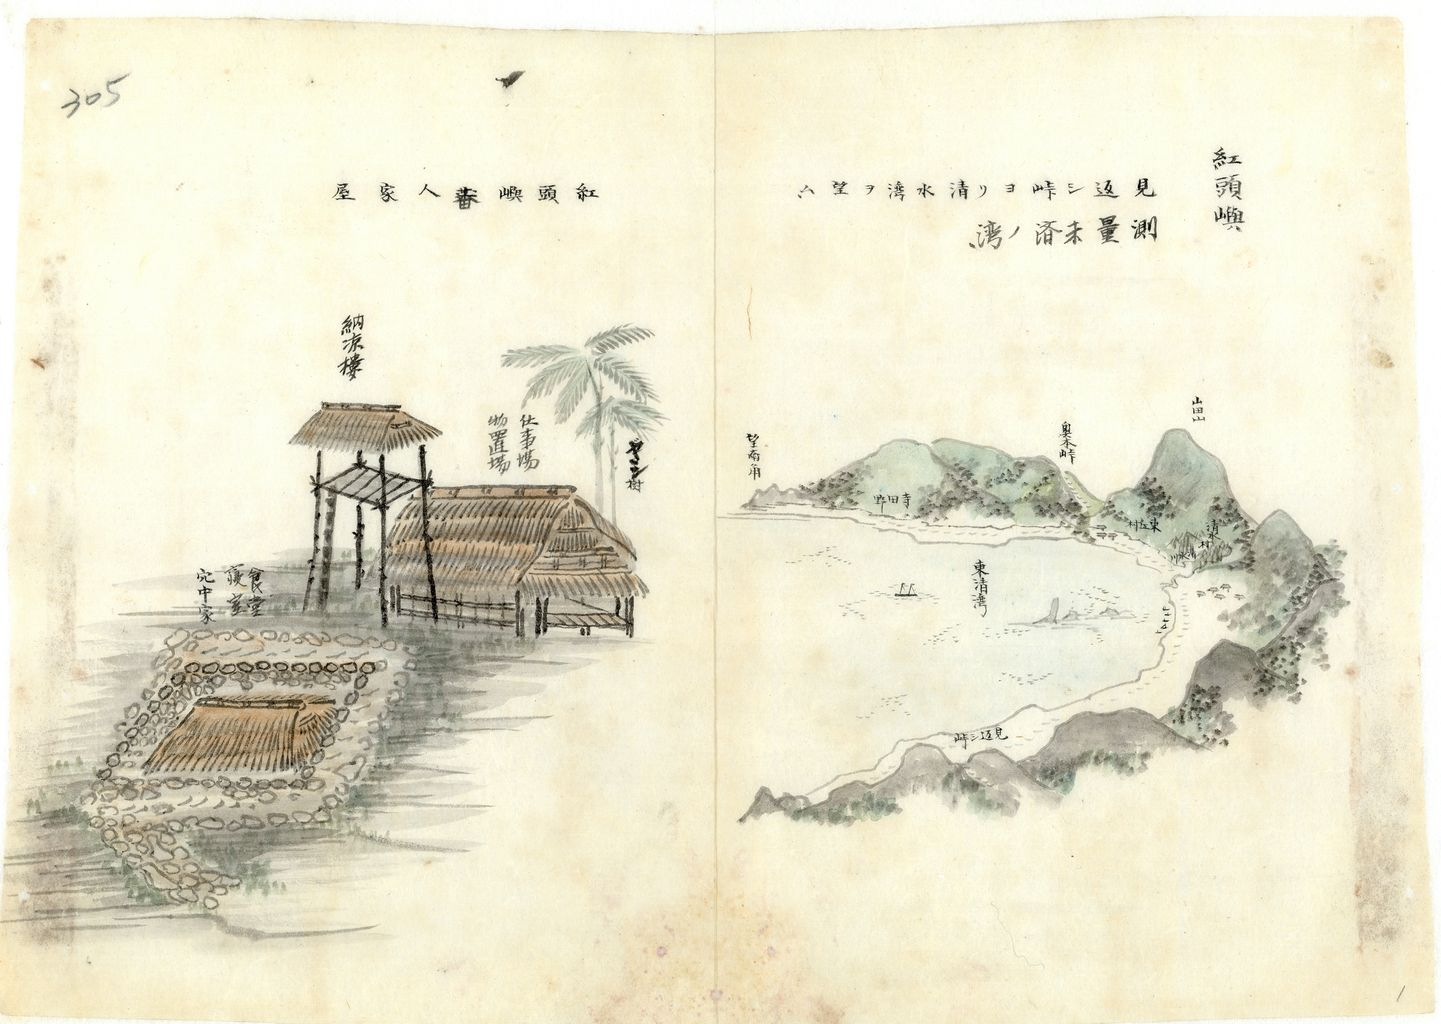 紅頭嶼
見返シ峠ヨリ清水湾ヲ望ム
測量未済ノ湾、
山田山
奥本峠
望南角
野田寺
東立村
清水村
清水川
東清湾
見返シ峠
305
紅頭嶼蕃人家屋
納凉樓
仕事場
物置場
樹
食堂
寝室
穴中家